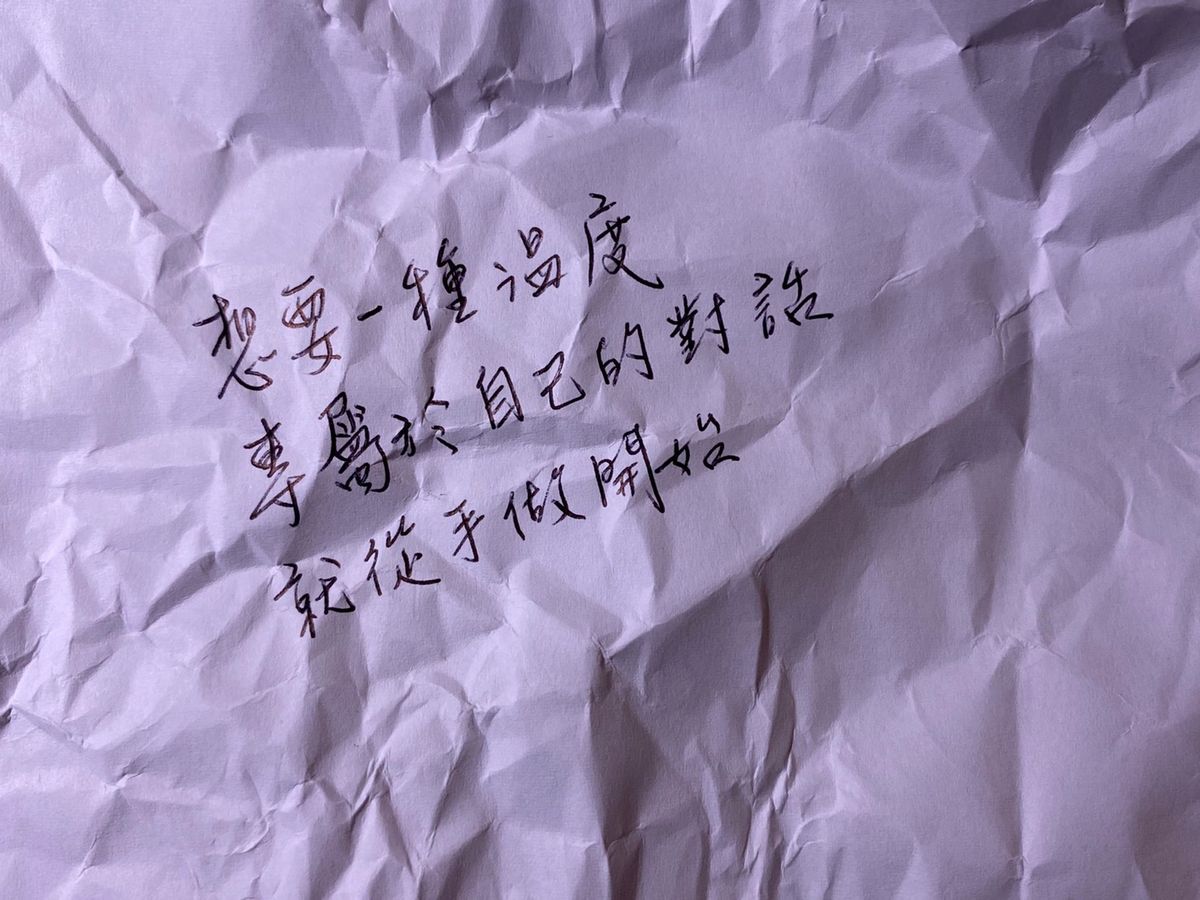 想要一種溫度
專屬於自己的對話
就從手做開始